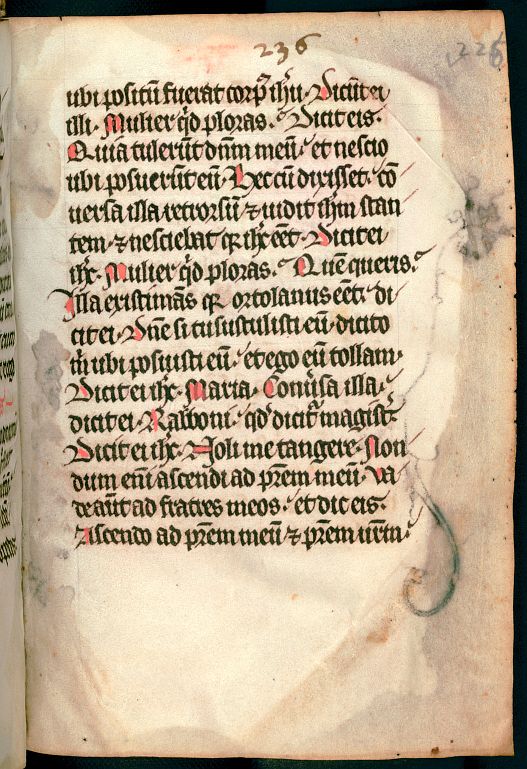 236
226
ubi positū fuerat corpꝰ ihu. Dicūt ei
illi. Mulier qd ploras. Dicit eis.
Quia tulerūt dn̄m meū. et nescio
ubi posuerūt eū. Hec cū dixisset. cō
uersa illa retrorsū. ⁊ uidit ihm stan
tem. ⁊ nesciebat qꝛ ihc eēt. Dicit ei
ihc. Mulier qd ploras. Quē queris.
Illa existimās qꝛ ortolanus eēt. di
cit ei. Dn̄e si tu sustulisti eū. dicito
m̄ ubi posuisti eū. et ego eū tollam.
Dicit ei ihc. Maria. Conūsa illa.
dicit ei. Rabboni. qd dicit̉ magist̉.
Dicit ei ihc. Noli me tangere. Non
dum enī ascendi ad pr̄em meū. Va
de aūt ad fratres meos. et dic eis.
Ascendo ad pr̄em meū ⁊ pr̄em ur̄m.